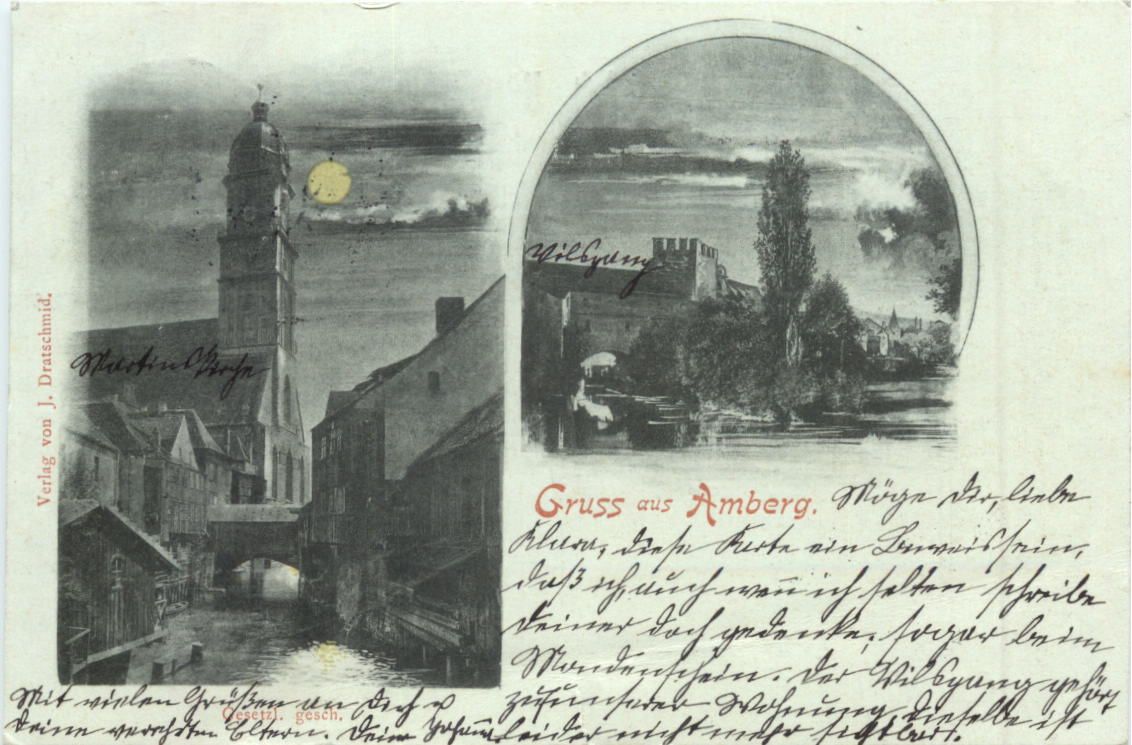 Verlag von J. Dratschmid.
Martinskirche
Vilsgang
Gruss aus Amberg.
Möge Dir, liebe
Klara, diese Karte ein Beweis sein,
daß ich, auch wenn ich selten schreibe
Deiner doch gedenke, sogar beim
Mondenschein. Der Vilsgang gehört
zu unserer Wohnung, dieselbe ist
leider nicht mehr sichtbar.
Mit vielen Grüßen an Dich u
Deine verehrten Eltern. Deine
Gesetzl. gesch.